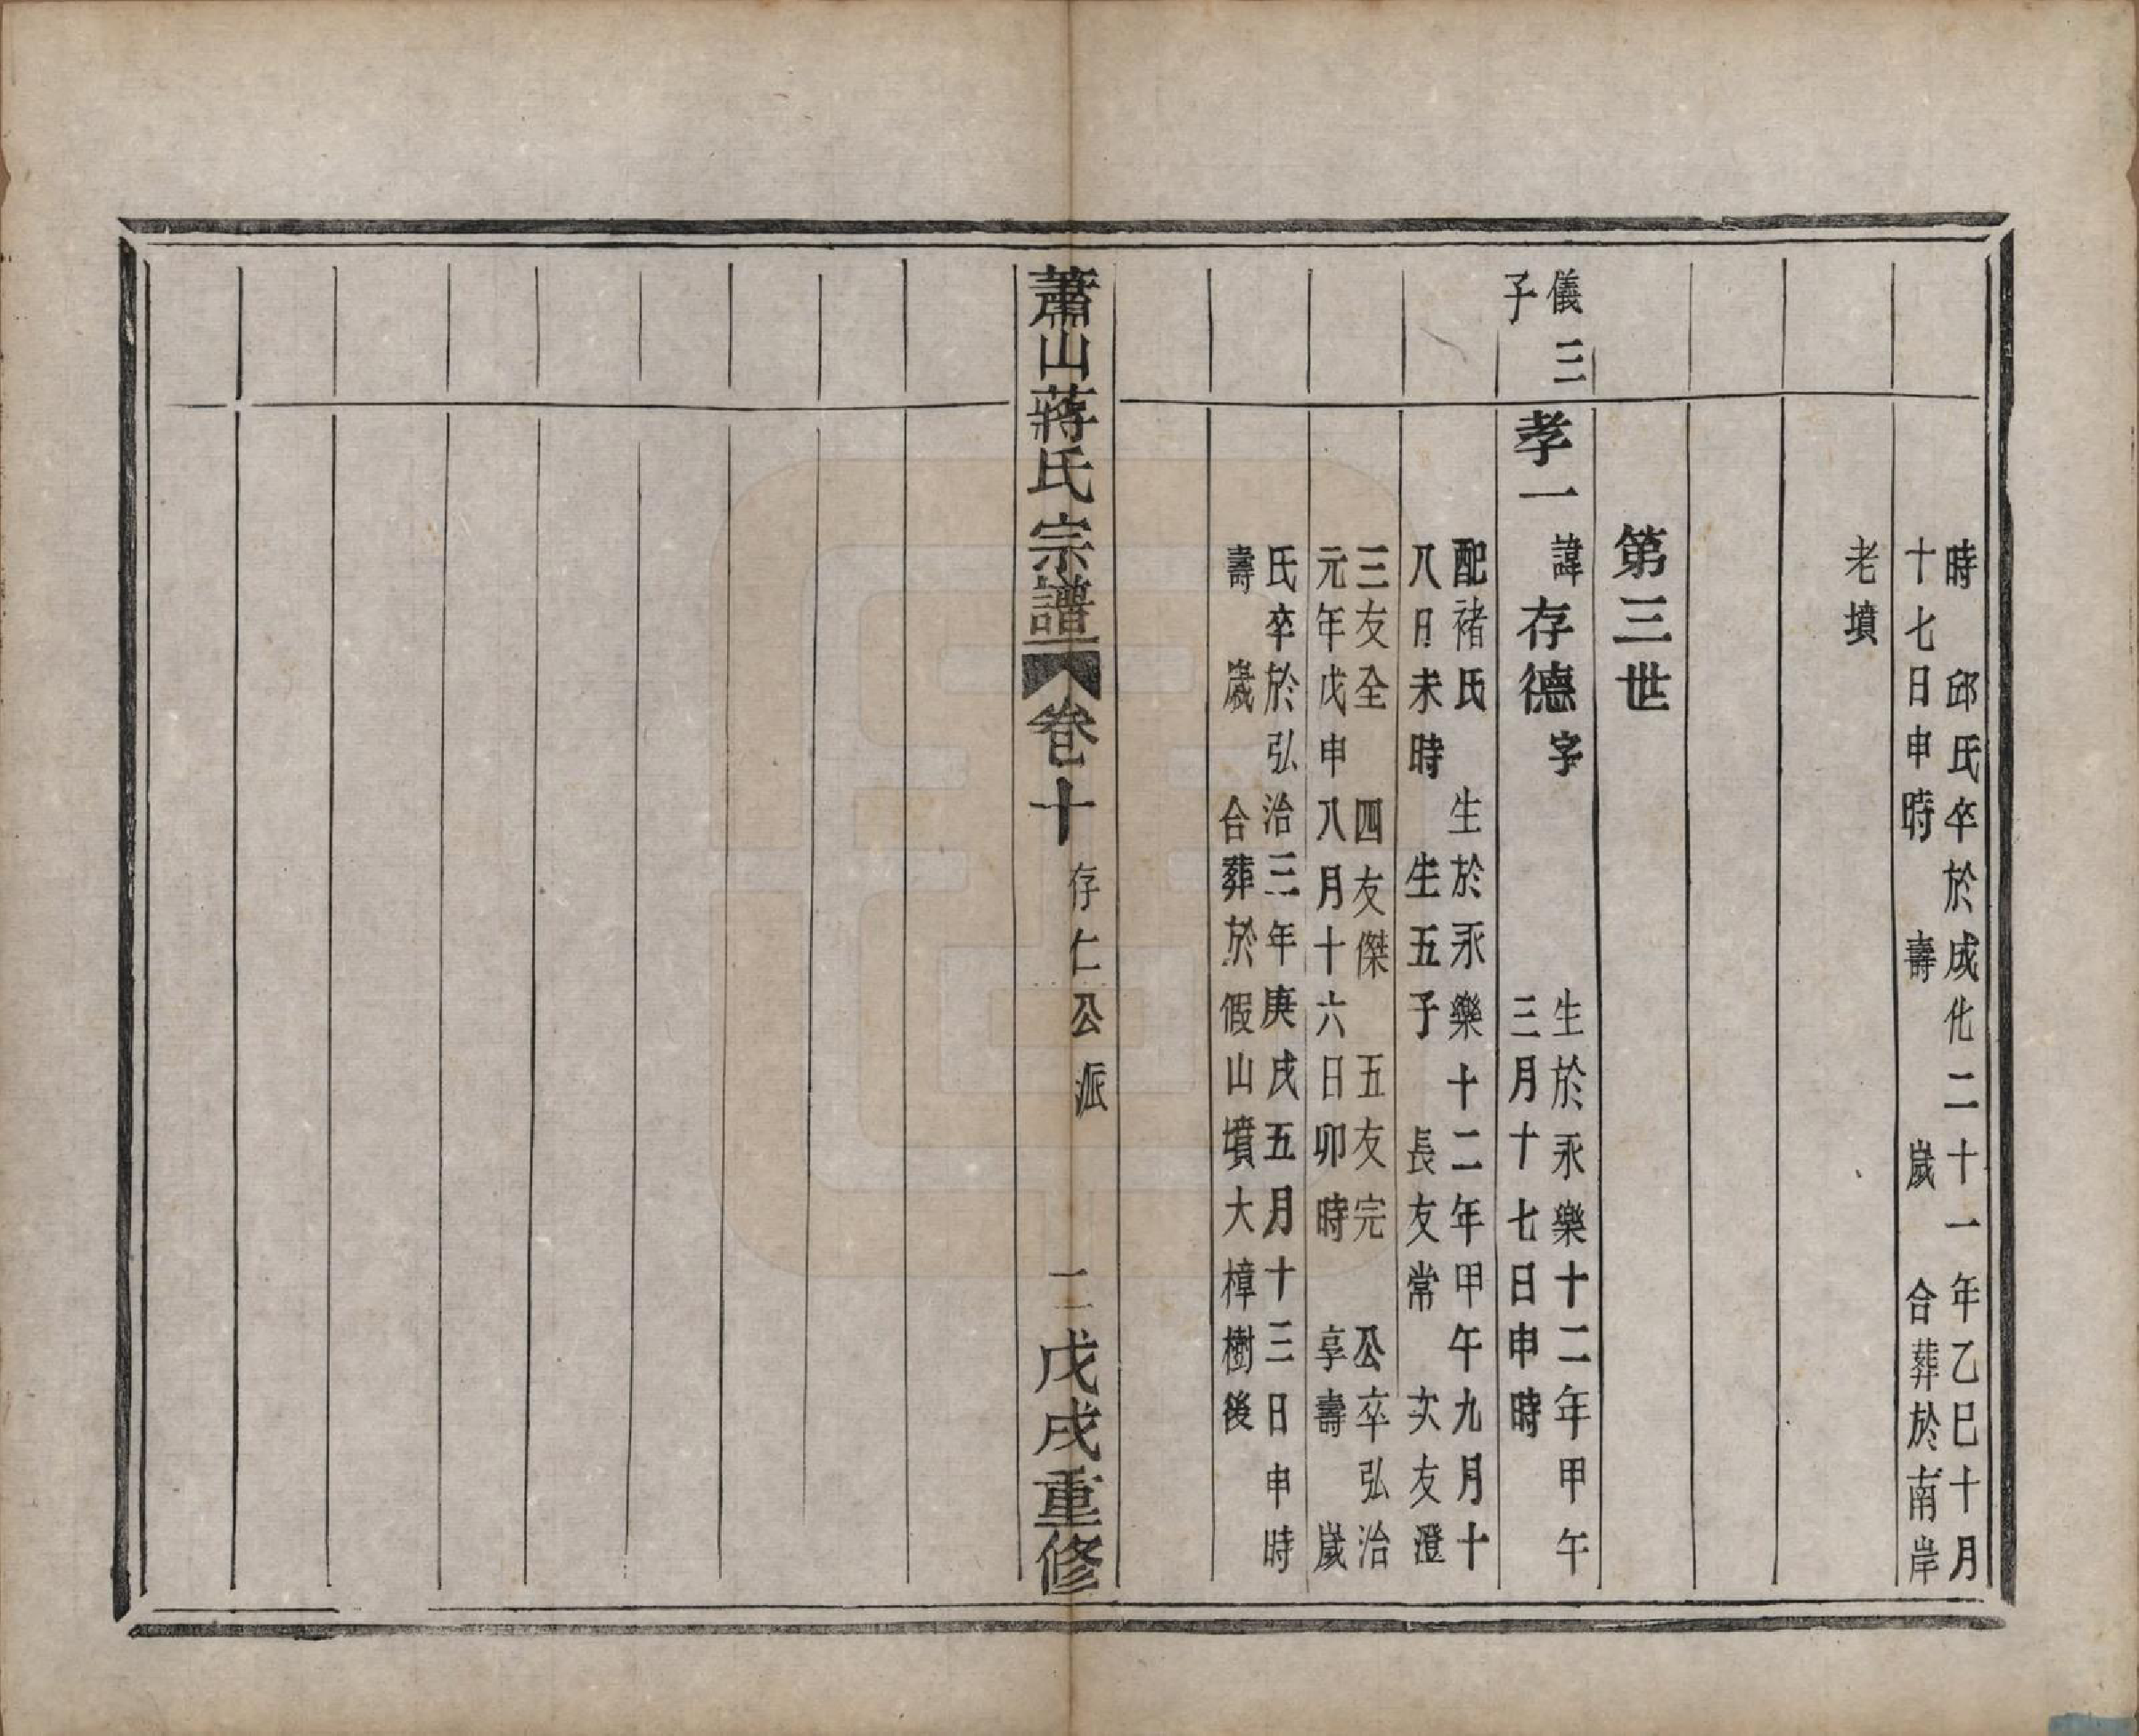 時　邱氏卒於成化二十一年乙巳十月
十七日申時　壽　　歲　合葬於南岸
老墳
第三世
儀三
子
孝一
諱存德字
生於永樂十二年甲午
三月十七日申時
配褚氏　生於永樂十二年甲午九月十
八日未時　生五子　長友常　次友澄
三友全　四友傑　五友完　公卒弘治
元年戊申八月十六日卯時　享壽　歲
氏卒於弘治三年庚戌五月十三日申時
壽　歲　合葬於假山墳大樟樹後
蕭山蔣氏宗譜　卷十　存仁公派　二　戊戌重修